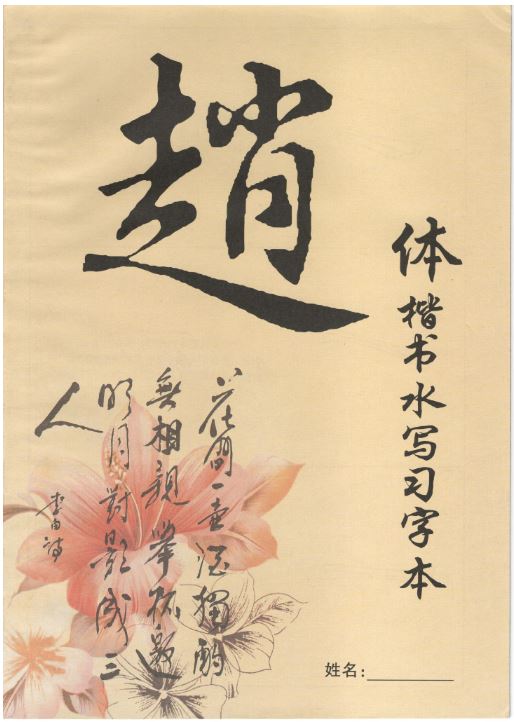 趙
体楷书水写习字本
花間一壶酒獨酌
無相親舉杯邀
明月對影成三
人
李白詩
姓名：